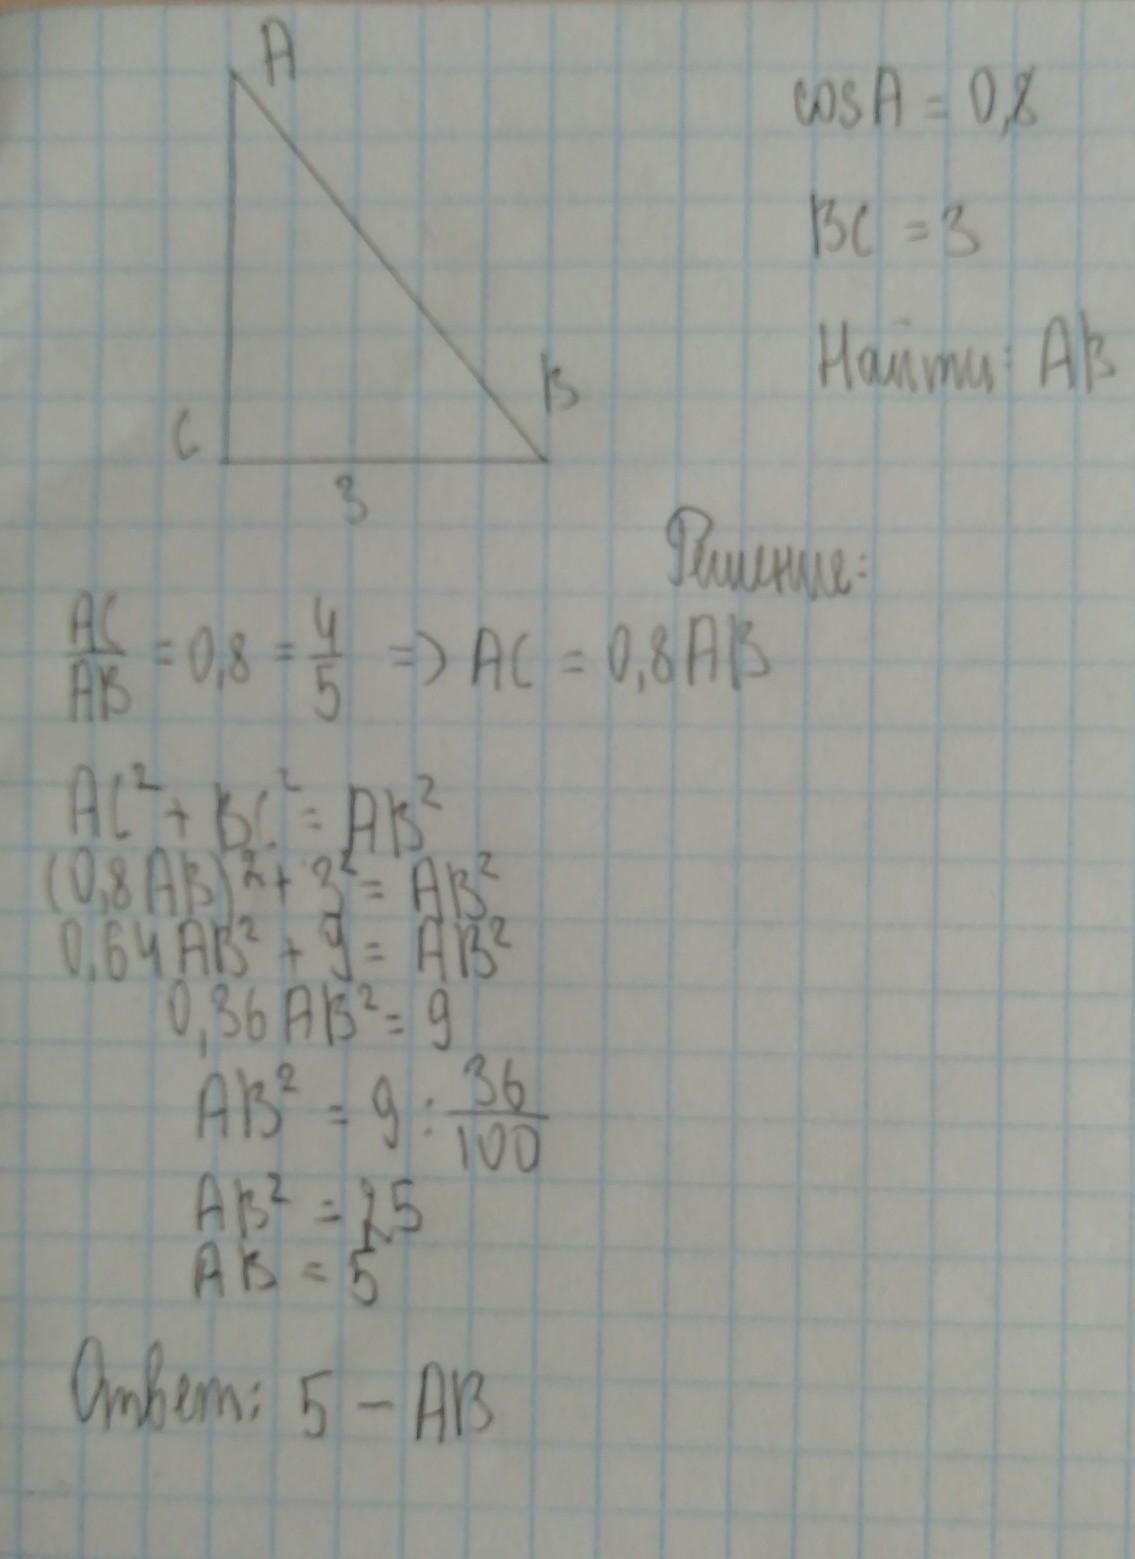 A
cosA = 0,8
BC = 3
Найти: AB
B
C
3
Решение:
AC/AB = 0,8 = 4/5 => AC = 0,8AB
AC² + BC² = AB²
(0,8AB)² + 3² = AB²
0,64AB² + 9 = AB²
0,36AB² = 9
AB² = 9 : 36/100
AB² = 25
AB = 5
Ответ: 5 – AB